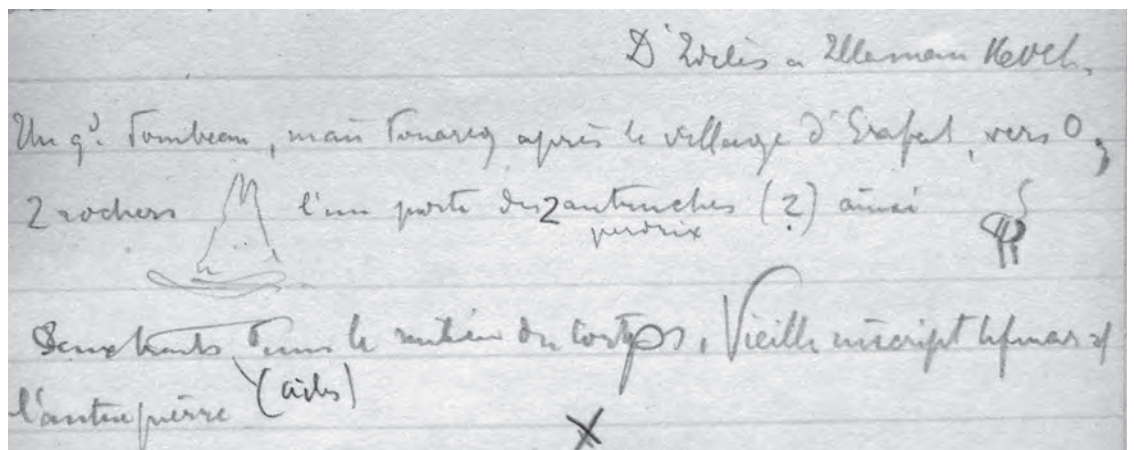 D'Idelès a
Un gd. Tombeau, mais Touareg après le village d'Erafat, vers O,
2 rochers l'un porte des 2 autruches (?) ainsi
perdrix
Deux traits dans le milieu du corps. Vieille inscript tifinar sf
(ailes)
l'autre pierre
X